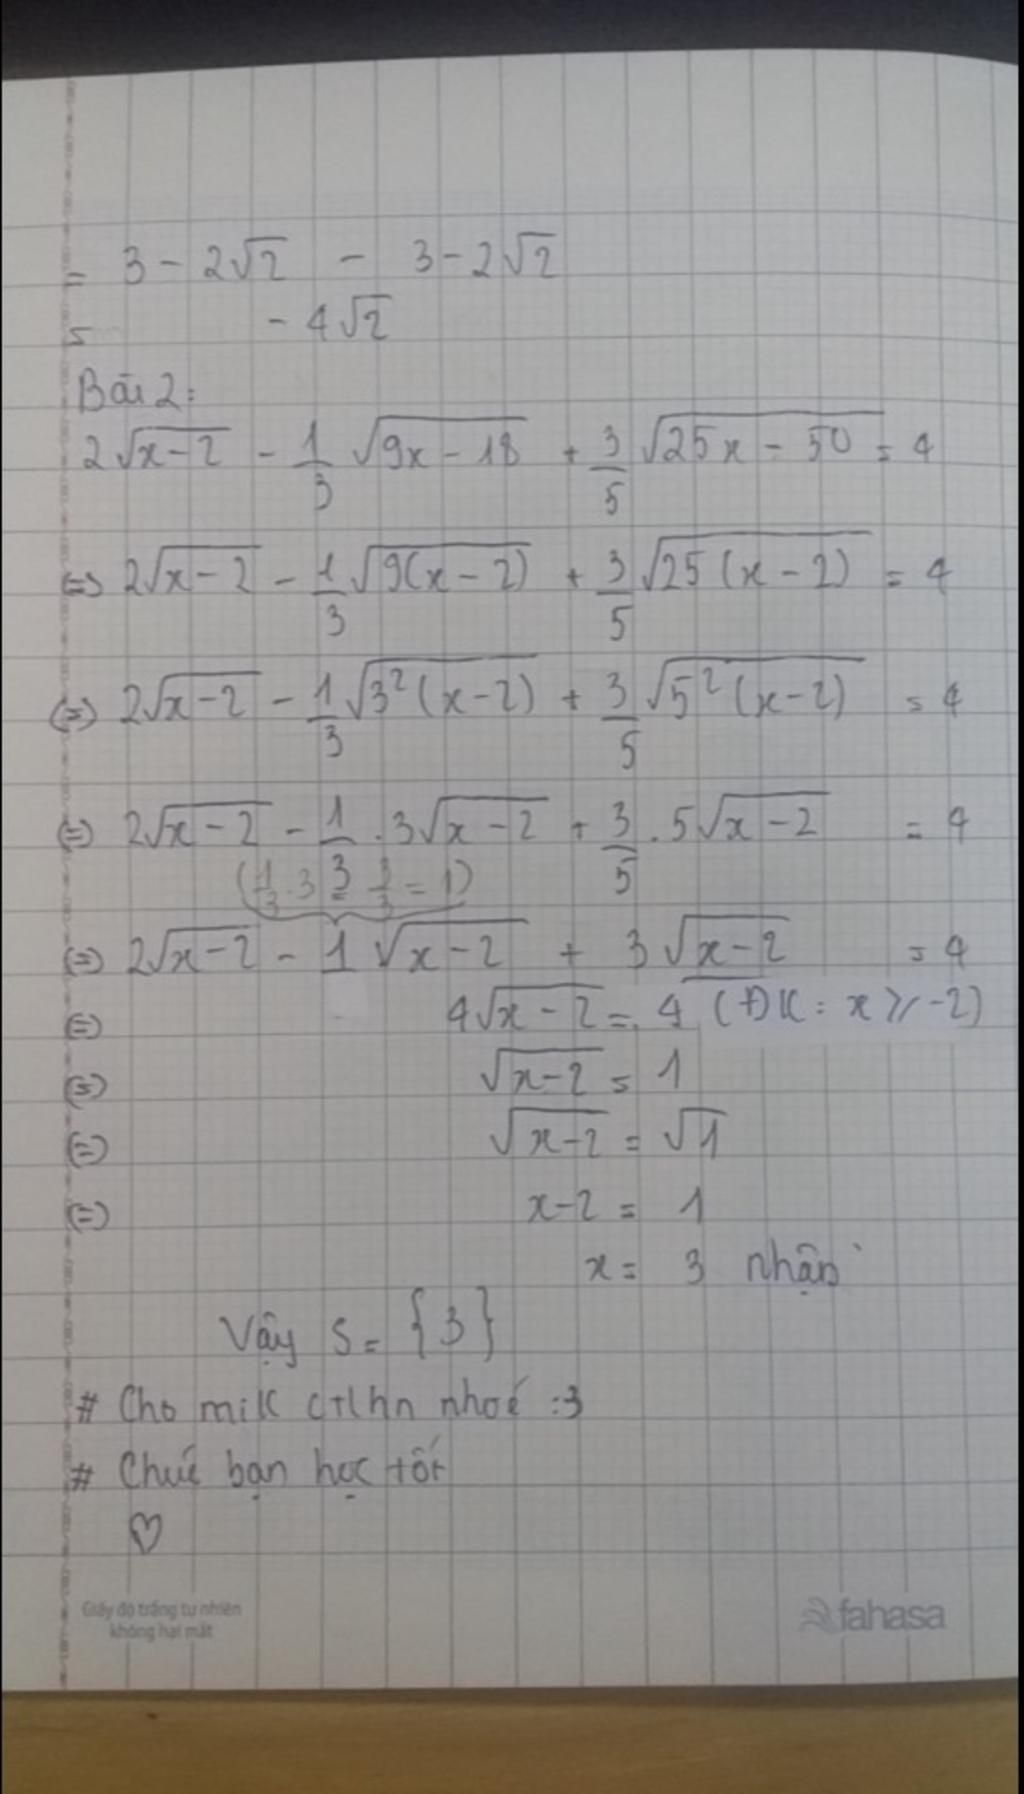 = 3 - 2√2 - 3 - 2√2
= - 4√2
Bài 2:
2√(x-2) - 1/3 √(9x - 18) + 3/5 √(25x - 50) = 4
(=) 2√(x-2) - 1/3 √(9(x-2)) + 3/5 √(25(x-2)) = 4
(=) 2√(x-2) - 1/3 √(3²(x-2)) + 3/5 √(5²(x-2)) = 4
(=) 2√(x-2) - 1/3 . 3√(x-2) + 3/5 . 5√(x-2) = 4
(1/3 . 3 = 3/3 = 1)
(=) 2√(x-2) - 1√(x-2) + 3√(x-2) = 4
(=) 4√(x-2) = 4 (ĐK: x ≥ -2)
(=) √(x-2) = 1
(=) √(x-2) = √1
(=) x-2 = 1
x = 3 nhận
Vậy S = {3}
# Cho mik ctlhn nhoé :3
# Chúc bạn học tốt
♡
Giấy độ trắng tự nhiên
không hại mắt
fahasa